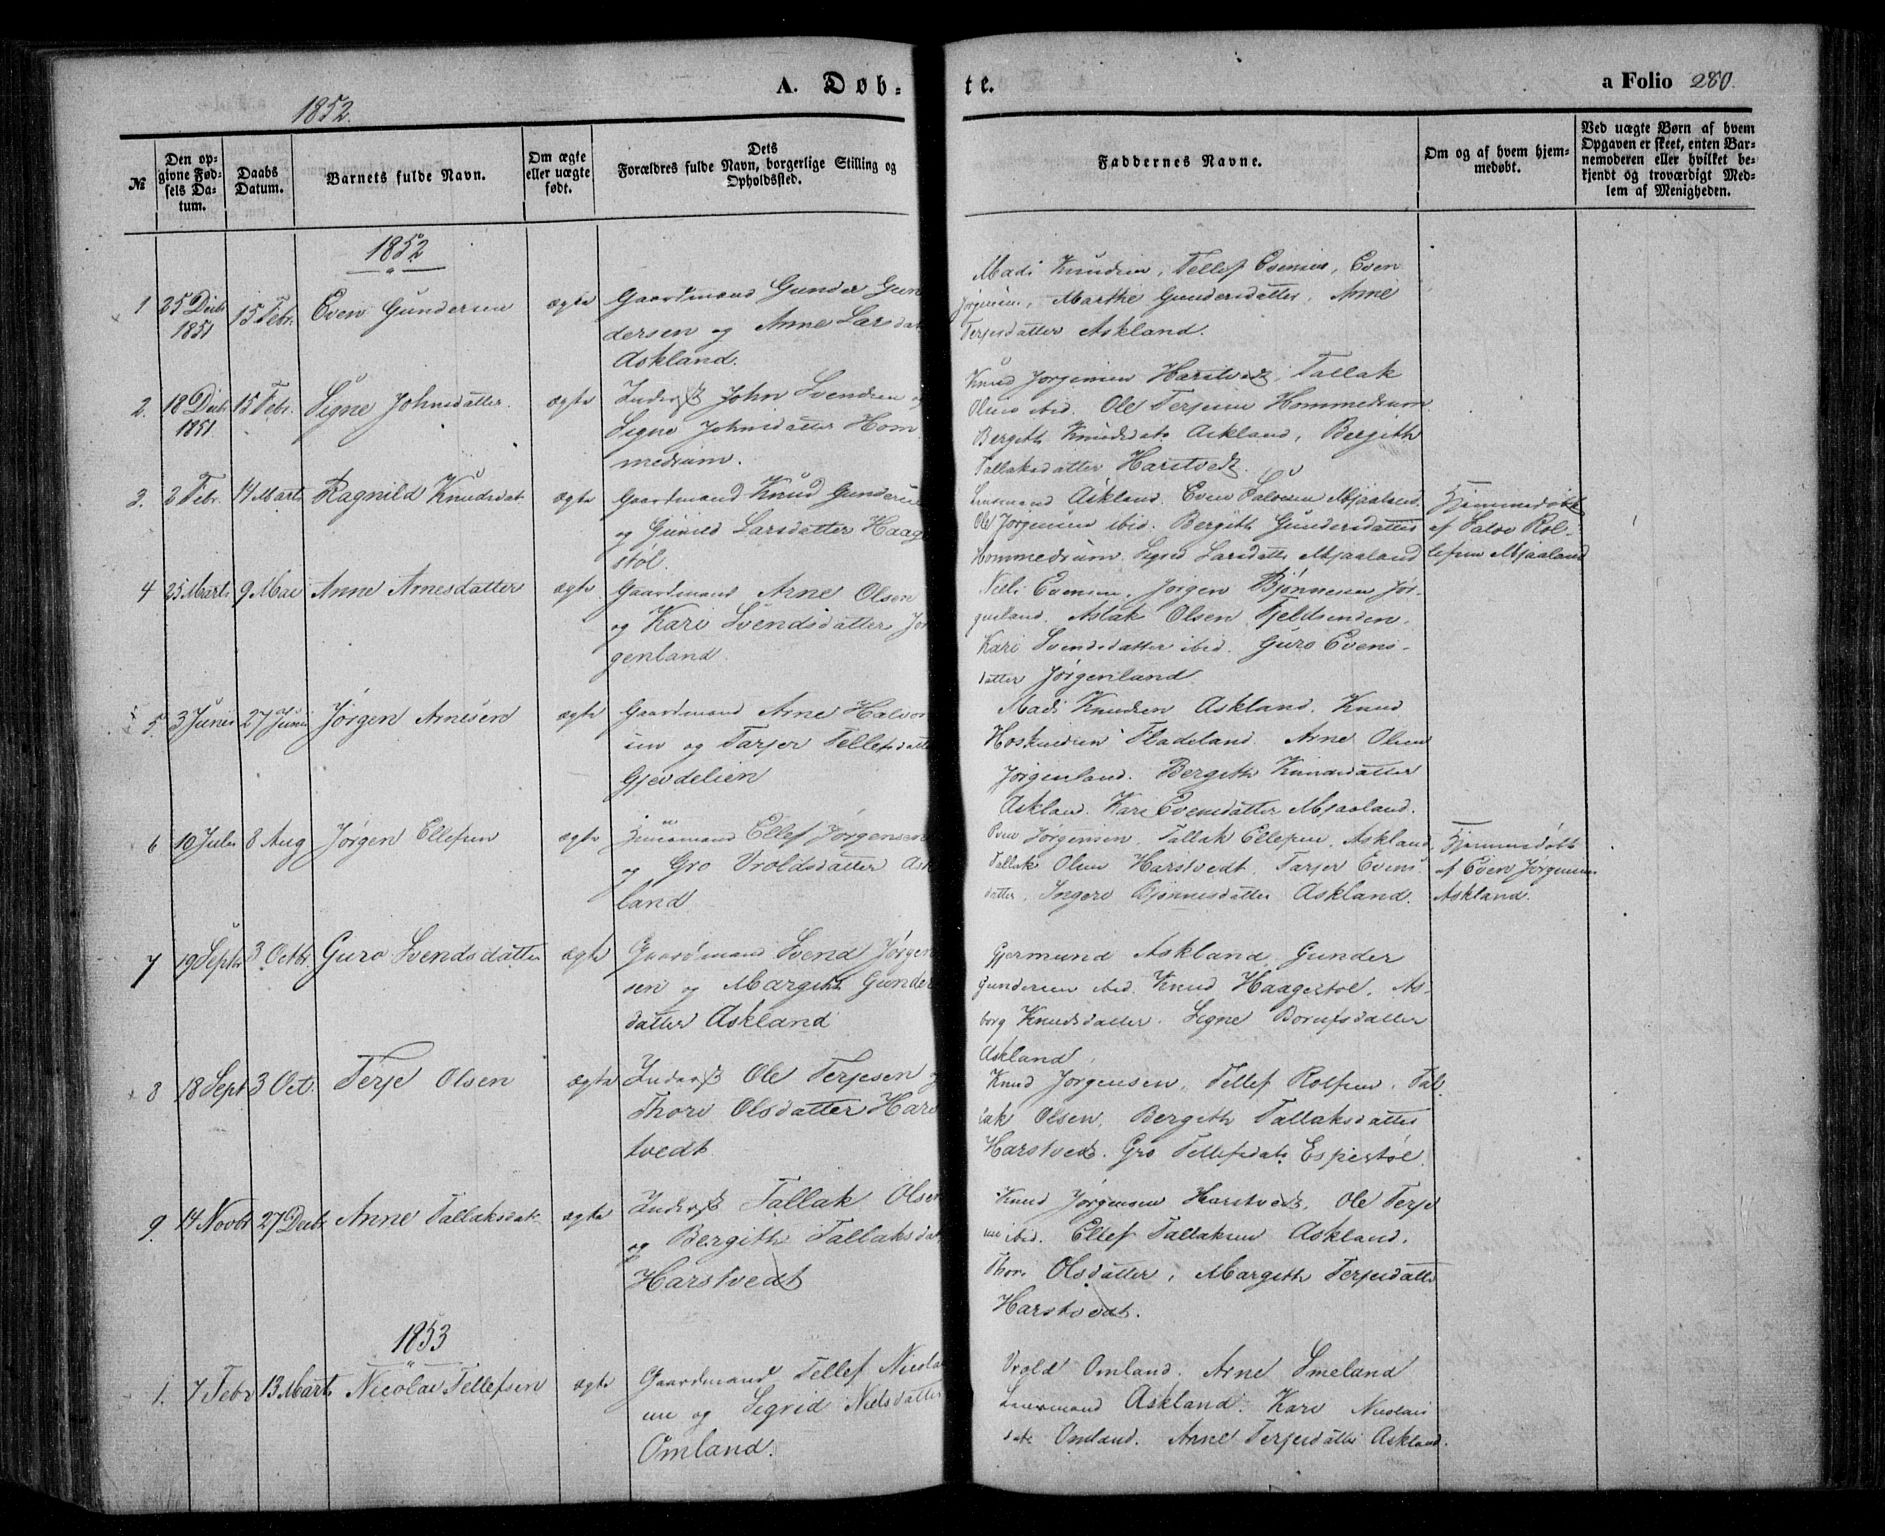 A. Døb-
te.
a Folio 280.
1852.
№
Den op-
givne Fød-
sels Da-
tum.
Daabs
Datum.
Barnets fulde Navn.
Om ægte
eller uægte
født.
Dets
Forældres fulde Navn, borgerlige Stilling og
Opholdssted.
Faddernes Navne.
Om og af hvem hjem-
medøbt.
Ved uægte Børn af hvem
Opgaven er skeet, enten Bar-
nemoderen eller hvilket be-
kjendt og troværdigt Med-
lem af Menigheden.
1852
1 25 Decbr 1851 15 Febr. Even Gundersen ægte
Gaardmand Gunder Gun
dersen og Anne Larsdat
Askland.
Madi Knudsen, Tellef Evensen, Even
Jørgensen, Marthe Gundersdatter, Anne
Terjesdatter Askland.
2. 18 Decbr 1851 15 Febr. Signe Johnsdatter ægte
Inderst John Svendsen og
Signe Johnsdatter Hom
medram.
Knud Jorgensen Harstvedt, Tallak
Olsen ibid. Ole Terjesen Hommedram
Bergith Knudsdatr Askland, Bergith
Tallaksdatter Harstvedt.
3. 2 Febr. 14 Marts Ragnild Knudsdat ægte
Gaardmand Knud Gundersen
og Gunild Larsdatter Haage
støl.
Lensmand Askland. Even Salvesen Mjaaland.
Ole Jorgensen ibid. Bergith Gundersdatter
Hommedram. Sigrid Larsdatter Mjaaland
Hjemmedøbt
af Salve Rol-
lefsen Mjaaland
4 25 Marts 9 Mai Anne Arnesdatter ægte
Gaardmand Arne Olsen
og Kari Svendsdatter Jør
genland.
Niels Evensen, Jørgen Bjønnesen Jør-
genland. Aslak Olsen Fjeldsenden.
Kari Svendsdatter ibid. Guro Evens-
datter Jørgenland.
5. 3 Junii 27 Junii Jørgen Arnesen ægte
Gaardmand Arne Halvor
sen og Tarjer Tellefsdatter
Gjevdelien
Madi Knudsen Askland. Knud
Hoskuldsen Fladeland. Arne Olsen
Jørgenland. Bergith Knudsdatter
Asklan. Kari Evensdatter Mjaaland.
6 10 Juli 8 Aug Jørgen Ellefsen ægte
Huusmand Ellef Jørgensen
og Gro Vroldsdatter Ask
land
Even Jørgensen Tallak Ellefsen. Askland
Tallak Olsen Harstvedt. Tarjer Evens
datter, Ingere Bjønnesdatter Askland.
Hjemmedøbt
af Even Jørgensen
Askland.
7 19 Septbr 3 Octbr Guro Svendsdatter ægte
Gaardmand Svend Jørgen
sen og Margith Gunders
datter Askland
Gjermund Askland, Gunder
Gundersen ibid. Knud Haagestøl. As-
borg Knudsdatter. Signe Borufsdatter
Askland.
8 18 Sept 3 Oct. Terje Olsen ægte
Inderst Ole Terjesen og
Thore Olsdatter Harst
tvedt
Knud Jørgensen, Tellef Rolfsen. Tal
lak Olsen, Bergith Tallaksdatter
Harstvedt. Gro Tellefsdatr Espestøl.
9. 14 Novbr 27 Decbr Anne Tallaksdatr ægte
Inderst Tallak Olsen
og Bergith Tallaksdatr
Harstvedt
Knud Jørgensen Harstvedt. Ole Terje
sen ibid. Ellef Tallaksen Askland.
Thore Olsdatter, Margith Terjesdatter
Harstvedt.
1853
1. 7 Febr 13 Marts Nicolai Tellefsen ægte
Gaardmand Tellef Nicolai
sen og Sigrid Nielsdatter
Omland.
Vrold Omland. Arne Smeland
Lensmand Askland. Kari Nicolais
datr Omland. Anne Terjesdatter Askland.